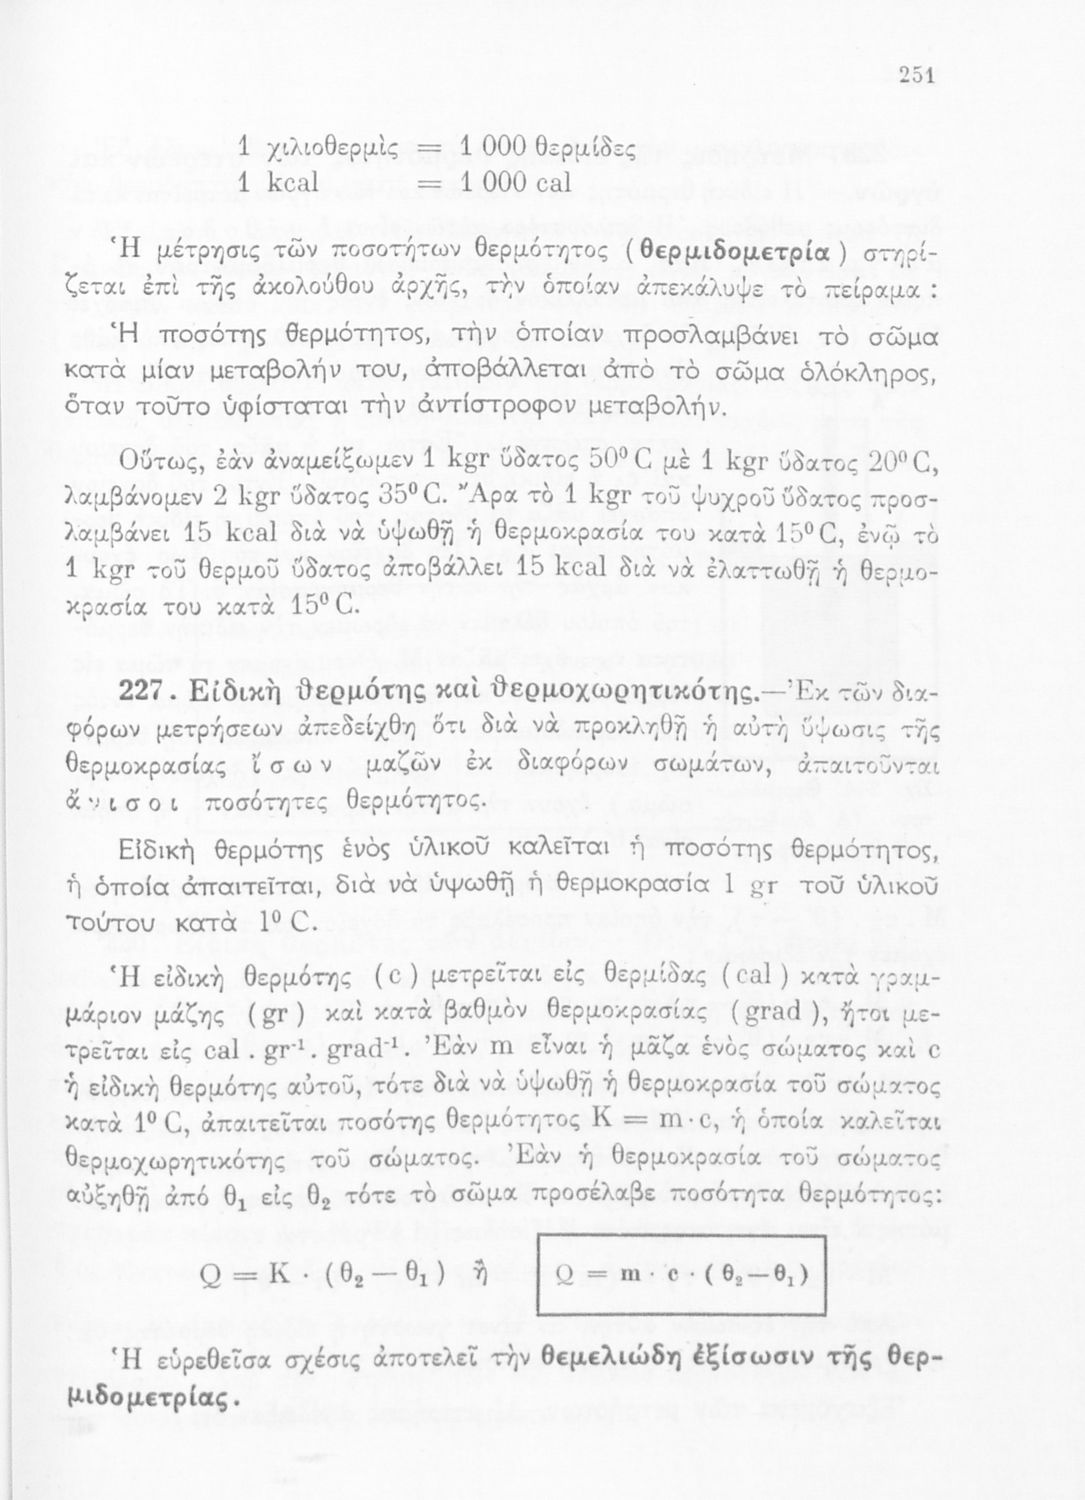 251
1 χιλιοθερμὶς = 1 000 θερμίδες
1 kcal = 1 000 cal
Ἡ μέτρησις τῶν ποσοτήτων θερμότητος (θερμιδομετρία) στηρί-
ζεται ἐπὶ τῆς ἀκολούθου ἀρχῆς, τὴν ὁποίαν ἀπεκάλυψε τὸ πείραμα :
Ἡ ποσότης θερμότητος, τὴν ὁποίαν προσλαμβάνει τὸ σῶμα
κατὰ μίαν μεταβολήν του, ἀποβάλλεται ἀπὸ τὸ σῶμα ὁλόκληρος,
ὅταν τοῦτο ὑφίσταται τὴν ἀντίστροφον μεταβολήν.
Οὕτως, ἐὰν ἀναμείξωμεν 1 kgr ὕδατος 50⁰ C μὲ 1 kgr ὕδατος 20⁰ C,
λαμβάνομεν 2 kgr ὕδατος 35⁰ C. Ἄρα τὸ 1 kgr τοῦ ψυχροῦ ὕδατος προσ-
λαμβάνει 15 kcal διὰ νὰ ὑψωθῇ ἡ θερμοκρασία του κατὰ 15⁰ C, ἐνῷ τὸ
1 kgr τοῦ θερμοῦ ὕδατος ἀποβάλλει 15 kcal διὰ νὰ ἐλαττωθῇ ἡ θερμο-
κρασία του κατὰ 15⁰ C.
227. Εἰδικὴ θερμότης καὶ θερμοχωρητικότης.—Ἐκ τῶν δια-
φόρων μετρήσεων ἀπεδείχθη ὅτι διὰ νὰ προκληθῇ ἡ αὐτὴ ὕψωσις τῆς
θερμοκρασίας ἴ σ ω ν μαζῶν ἐκ διαφόρων σωμάτων, ἀπαιτοῦνται
ἄ ν ι σ ο ι ποσότητες θερμότητος.
Εἰδικὴ θερμότης ἑνὸς ὑλικοῦ καλεῖται ἡ ποσότης θερμότητος,
ἡ ὁποία ἀπαιτεῖται, διὰ νὰ ὑψωθῇ ἡ θερμοκρασία 1 gr τοῦ ὑλικοῦ
τούτου κατὰ 1⁰ C.
Ἡ εἰδικὴ θερμότης (c) μετρεῖται εἰς θερμίδας (cal) κατὰ γραμ-
μάριον μάζης (gr) καὶ κατὰ βαθμὸν θερμοκρασίας (grad), ἤτοι με-
τρεῖται εἰς cal . gr⁻¹. grad⁻¹. Ἐὰν m εἶναι ἡ μᾶζα ἑνὸς σώματος καὶ c
ἡ εἰδικὴ θερμότης αὐτοῦ, τότε διὰ νὰ ὑψωθῇ ἡ θερμοκρασία τοῦ σώματος
κατὰ 1⁰ C, ἀπαιτεῖται ποσότης θερμότητος K = m · c, ἡ ὁποία καλεῖται
θερμοχωρητικότης τοῦ σώματος. Ἐὰν ἡ θερμοκρασία τοῦ σώματος
αὐξηθῇ ἀπό θ₁ εἰς θ₂ τότε τὸ σῶμα προσέλαβε ποσότητα θερμότητος:
Q = K · (θ₂ — θ₁) ἢ Q = m · c · (θ₂—θ₁)
Ἡ εὑρεθεῖσα σχέσις ἀποτελεῖ τὴν θεμελιώδη ἐξίσωσιν τῆς θερ-
μιδομετρίας.